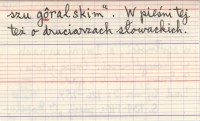 szu góralskim". W pieśni tej
też o druciarzach słowackich.